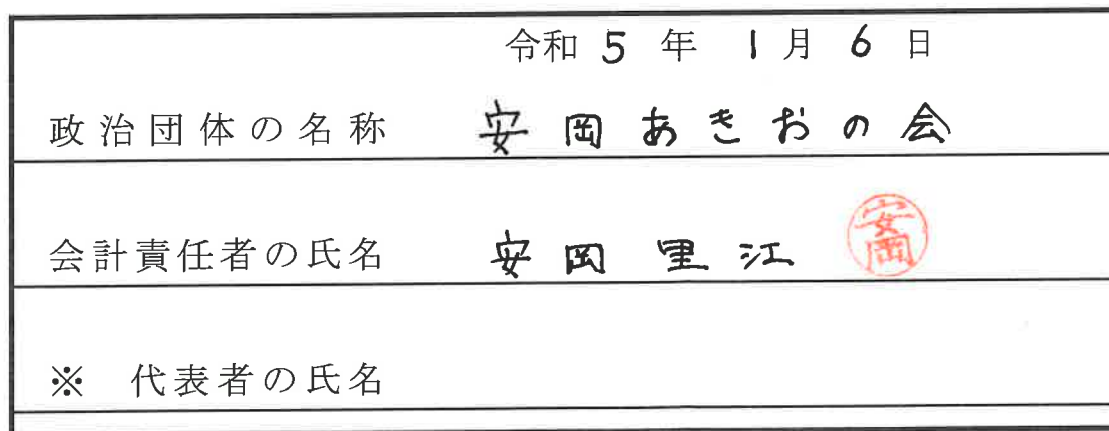 令和 5 年 1 月 6 日
政治団体の名称 安岡あきおの会
会計責任者の氏名 安岡里江 安岡
※ 代表者の氏名